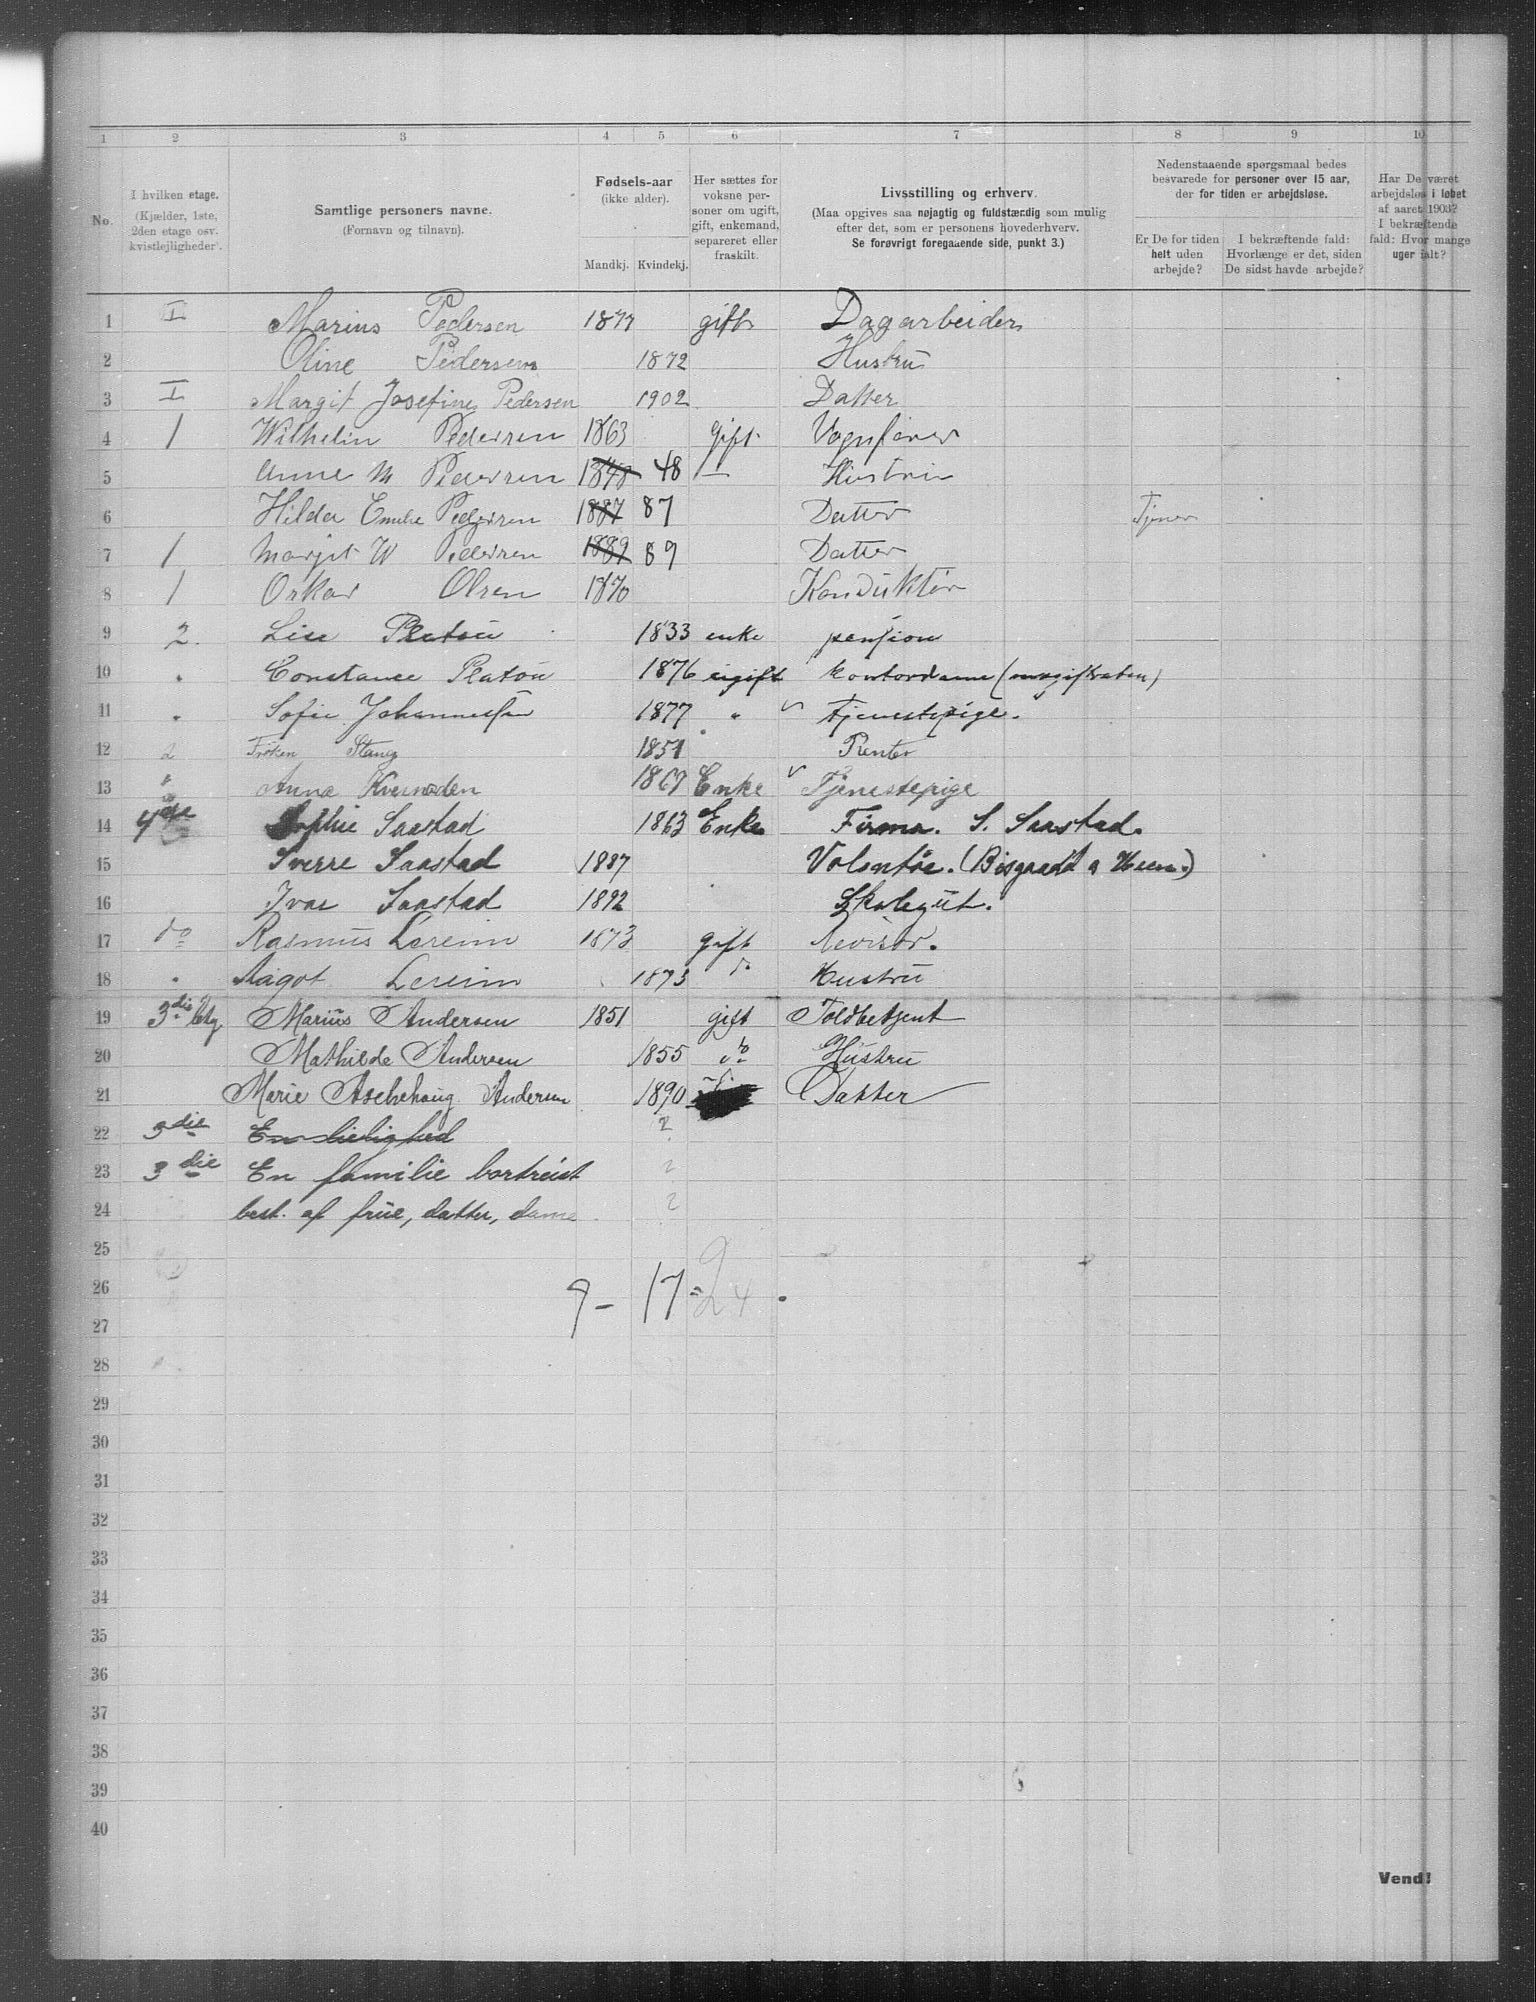 1 2 3 4 5 6 7 8 9 10
No.
I hvilken etage.
(Kjælder, 1ste,
2den etage osv.
kvistlejligheder).
Samtlige personers navne.
(Fornavn og tilnavn).
Fødsels-aar
(ikke alder).
Mandkj. Kvindekj.
Her sættes for
voksne per-
soner om ugift,
gift, enkemand,
separeret eller
fraskilt.
Livsstilling og erhverv.
(Maa opgives saa nøjagtig og fuldstændig som mulig
efter det, som er personens hovederhverv.
Se forøvrigt foregaaende side, punkt 3.)
Nedenstaaende spørgsmaal bedes
besvarede for personer over 15 aar,
der for tiden er arbejdsløse.
Er De for tiden
helt uden
arbejde?
I bekræftende fald:
Hvorlænge er det, siden
De sidst havde arbejde?
Har De været
arbejdsløs i løbet
af aaret 1903?
I bekræftende
fald: Hvor mange
uger ialt?
1 I Marius Pedersen 1877 gift Dagarbeider
2 Oline Pedersen 1872 Hustru
3 I Margit Josefine Pedersen 1902 Datter
4 1 Wilhelm Pedersen 1863 gift Vognfører
5 Anne M Pedersen 1848 48 — Hustru
6 Hilda Emilie Pedersen 1887 87 Datter Tjener
7 1 Margit W Pedersen 1889 89 Datter
8 1 Oskar Olsen 1870 Konduktør
9 2. Lise Platou 1833 enke pension
10 " Constance Platou 1876 ugift kontordame (magistraten)
11 " Sofie Johannessen 1877 " Tjenestepige.
12 2 Frøken Stang 1851 Renter
13 " Anna Kvernoden 1869 Enke Tjenestepige
14 4de Sophie Saastad 1863 Enke Firma. S. Saastad.
15 Sverre Saastad 1887 Volontør. (Bisgaard & Heem.)
16 Ivar Saastad 1892 Skolegut.
17 do Rasmus Lereim 1873 gift Revisor.
18 " Aagot Lereim 1873 do Hustru
19 3die Etg. Marius Andersen 1851 gift Toldbetjent
20 Mathilde Andersen 1855 do Hustru
21 Marie Aschehoug Andersen 1890 Datter
22 3die En leilighed 2
23 3die En familie bortreist 2
24 best. af frue, datter, dame 2
25
26 9 - 17 = 24
27
28
29
30
31
32
33
34
35
36
37
38
39
40
Vend!